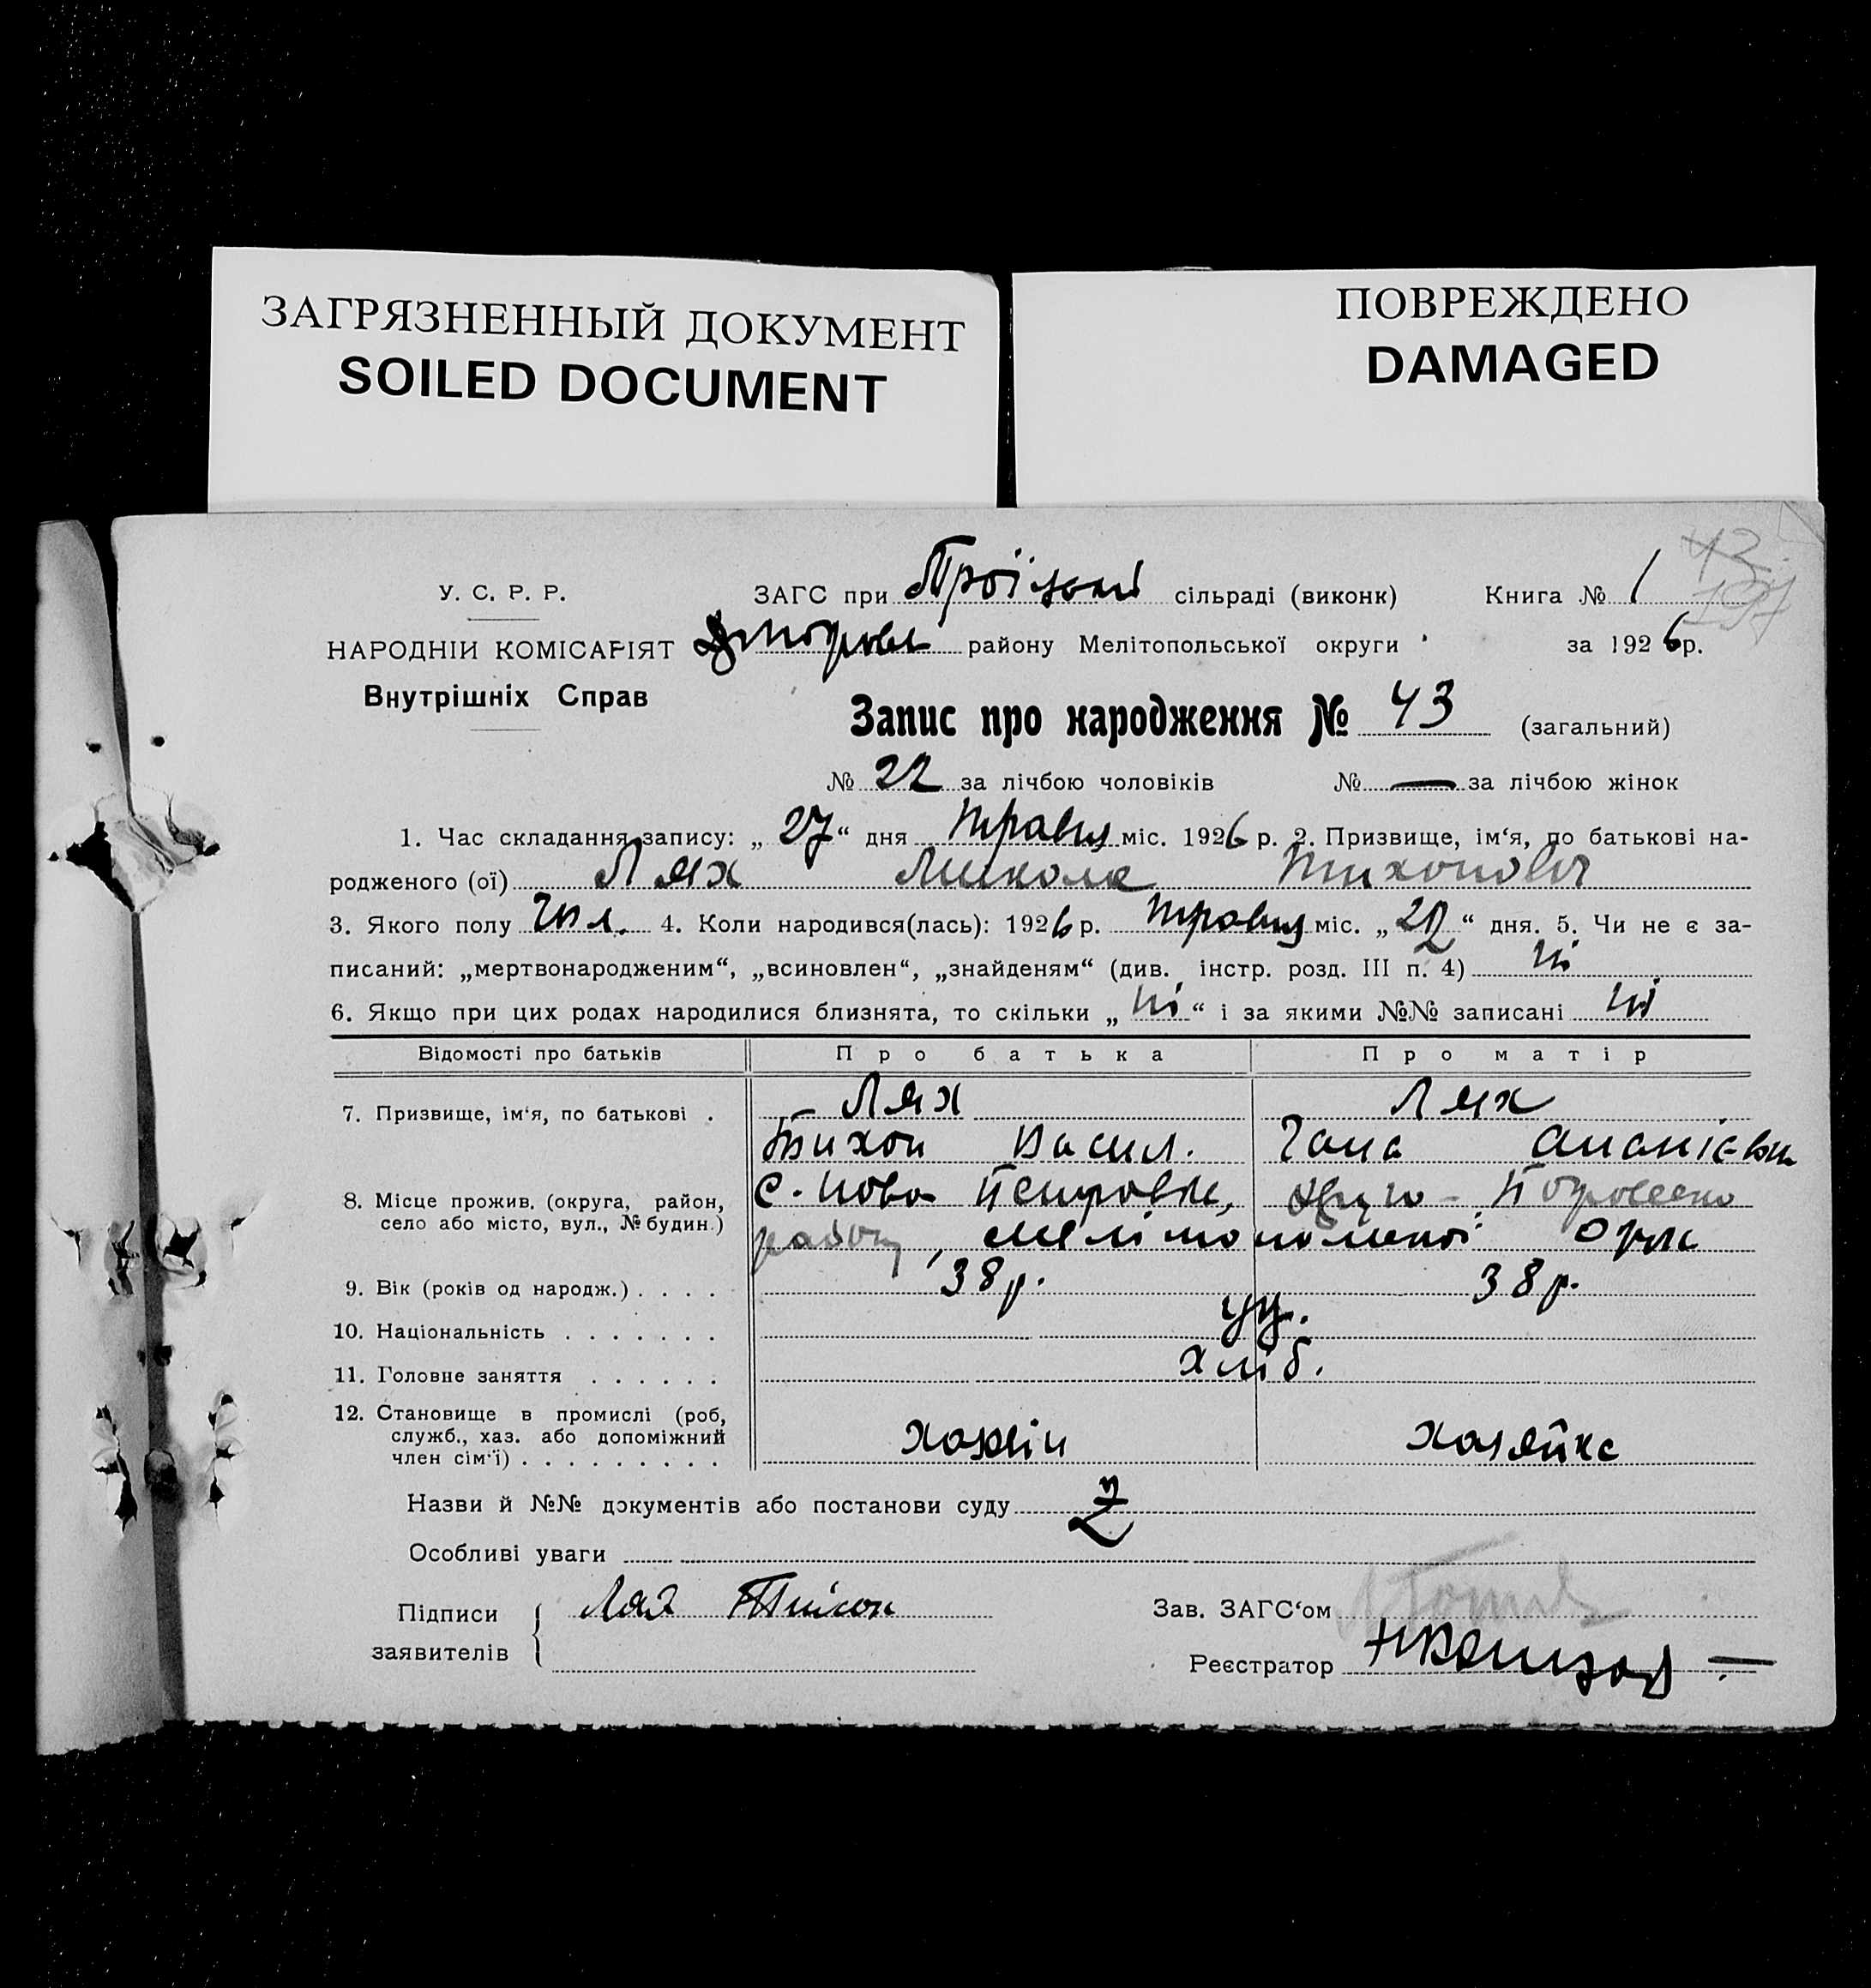 ЗАГРЯЗНЕННЫЙ ДОКУМЕНТ
SOILED DOCUMENT
ПОВРЕЖДЕНО
DAMAGED
У. С. Р. Р.
НАРОДНІИ КОМІСАРІЯТ
Внутрішніх Справ
43
ЗАГС при Троїцькій сільраді (виконк) Книга № 1
району Мелітопольської округи за 1926 р.
Запис про народження № 43 (загальний)
№ 22 за лічбою чоловіків № — за лічбою жінок
1. Час складання запису: „27“ дня травня міс. 1926 р. 2. Призвище, ім‘я, по батькові на-
родженого (ої) Лях Микола Тихонович
3. Якого полу чол. 4. Коли народився(лась): 1926 р. травня міс. „ “ дня. 5. Чи не є за-
писаний: „мертвонародженим“, „всиновлен“, „знайденям“ (див. інстр. розд. III п. 4) ні
6. Якщо при цих родах народилися близнята, то скільки „ні“ і за якими №№ записані ні
Відомості про батьків Про батька Про матір
7. Призвище, ім‘я, по батькові . Лях Лях
Тихон Васил. Гана Ананієвн
8. Місце прожив. (округа, район, село або місто, вул., № будин.) с. Ново Петровка, Покровсько
району, Мелітопольської окр
9. Вік (років од народж.) . . . . 38 р. 38 р.
10. Національність . . . . . . . ук.
11. Головне заняття . . . . . . хліб.
12. Становище в промислі (роб, служб., хаз. або допоміжний член сім‘ї) . . . . . . . . . хазяїн хазяйка
Назви й №№ документів або постанови суду
Особливі уваги
Підписи заявителів Лях Тихон
Зав. ЗАГС‘ом
Реєстратор